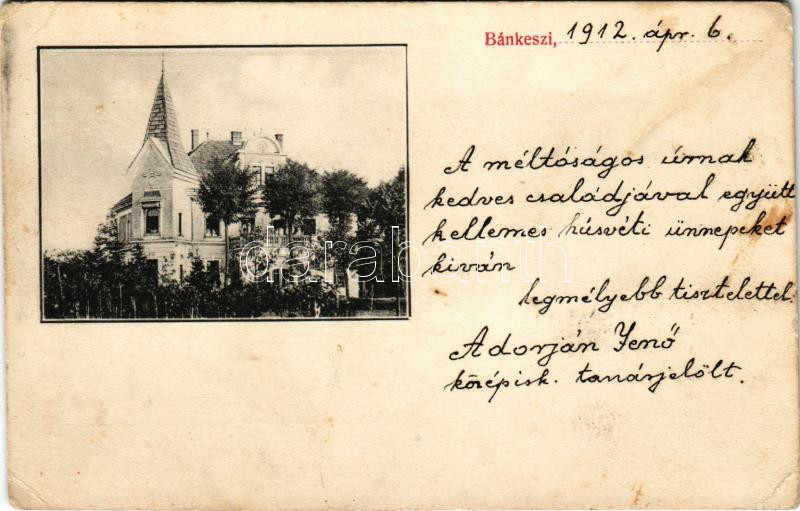 Bánkeszi, 1912. ápr. 6.
A méltóságos úrnak
kedves családjával együtt
kellemes húsvéti ünnepeket
kíván
legmélyebb tisztelettel:
Adorján Jenő
középisk. tanárjelölt.
darabanth